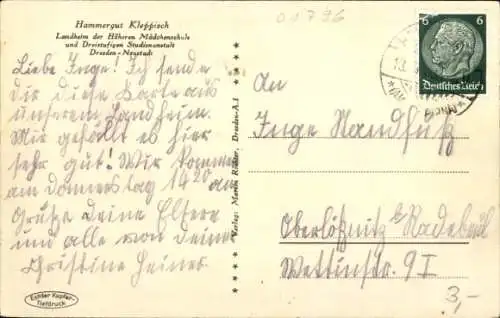 Hammergut Kleppisch
Landheim der Höheren Mädchenschule
und Dreistufigen Studienanstalt
Dresden-Neustadt
Liebe Inge! Ich sende
dir diese Karte aus
unserem Landheim.
Mir gefällt es hier
sehr gut! Wir kommen
am Donnerstag 14 20 an.
Grüße deine Eltern
und alle von deiner
Christine Heiner.
Echter Kupfer-
Tiefdruck
Verlag: Martin Röhler, Dresden-A.1
01796
6 6
Deutsches Reich
An
Inge Handfuß
Oberlößnitz b/ Radebeul
Wettinstr. 9 I
3,-